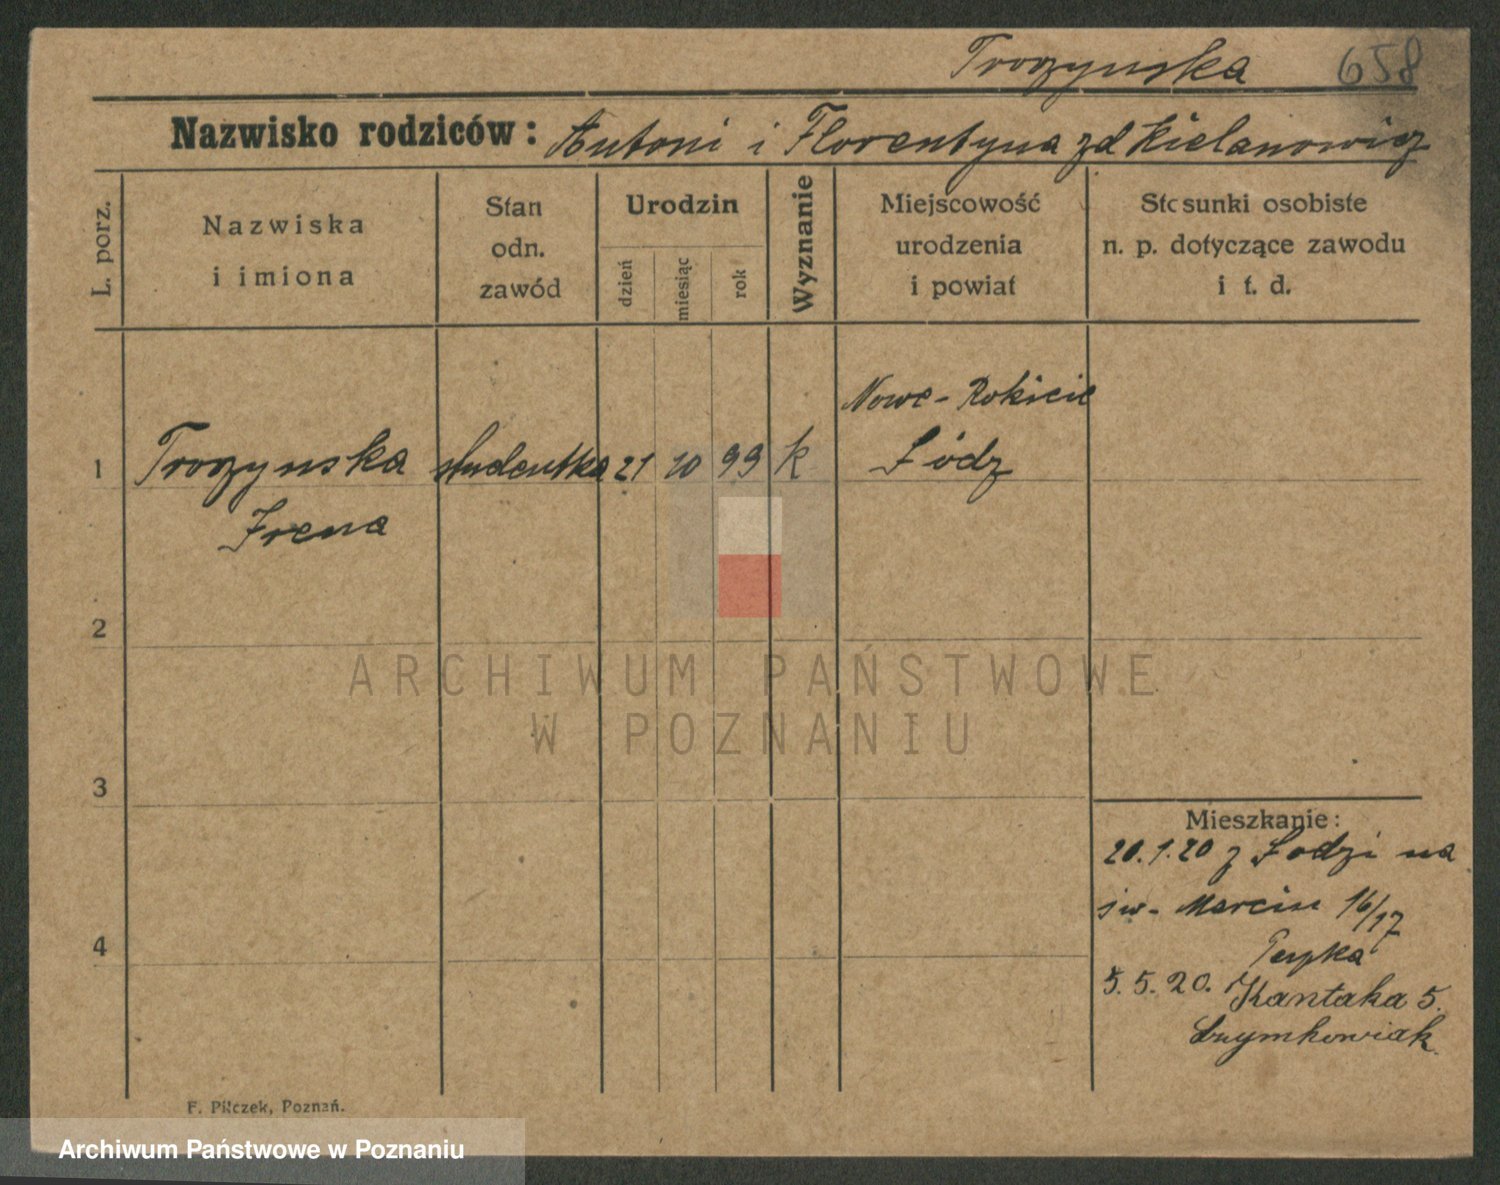 Troczynska 658
Nazwisko rodziców: Antoni i Florentyna zd Kielanowicz
L. porz.
Nazwiska
i imiona
Stan
odn.
zawód
Urodzin
dzień
miesiąc
rok
Wyznanie
Miejscowość
urodzenia
i powiat
Stosunki osobiste
n. p. dotyczące zawodu
i t. d.
Nowe-Rokicie
1 Troczynska studentka 21 10 99 k Łódz
Irena
2
ARCHIWUM PAŃSTWOWE
W POZNANIU
3
Mieszkanie:
20.1.20 z Łodzi na
św- Marcin 16/17
4
5.5.20. Kantaka 5.
Szymkowiak
F. Pilczek, Poznań.
Archiwum Państwowe w Poznaniu